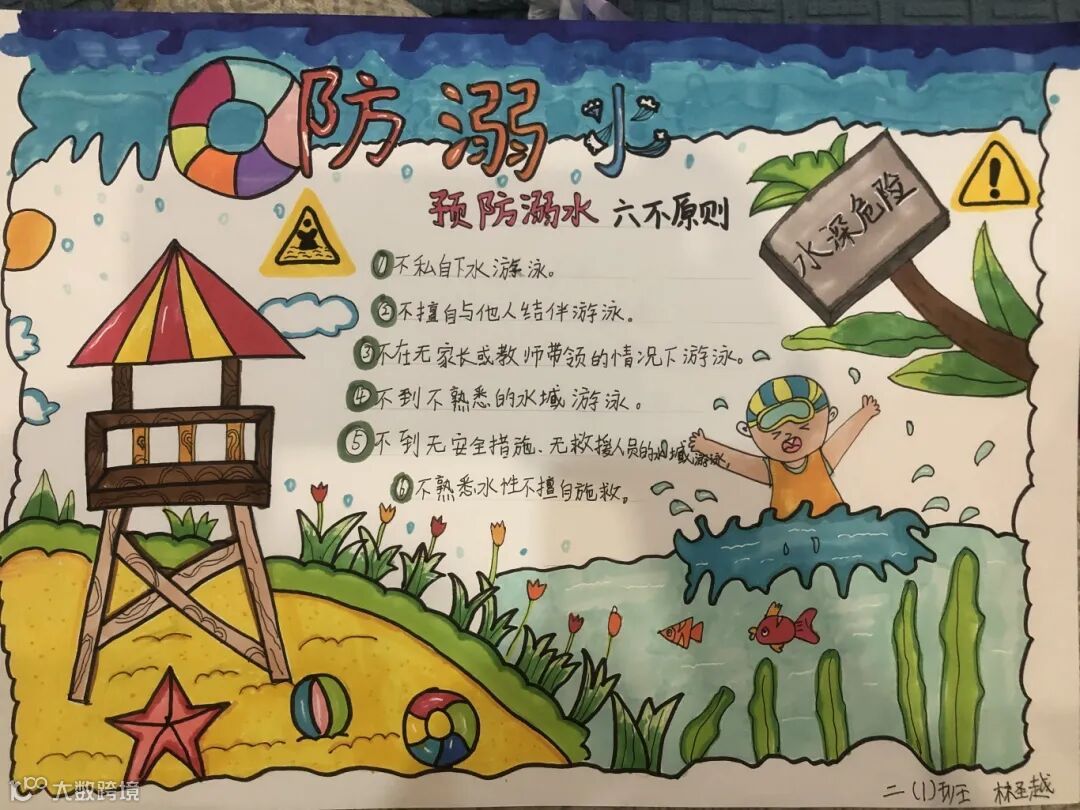 防溺水
预防溺水 六不原则
水深危险
①不私自下水游泳。
②不擅自与他人结伴游泳。
③不在无家长或教师带领的情况下游泳。
④不到不熟悉的水域游泳。
⑤不到无安全措施、无救援人员的水域游泳,
⑥不熟悉水性不擅自施救。
大数跨境
二(1)班 林圣越